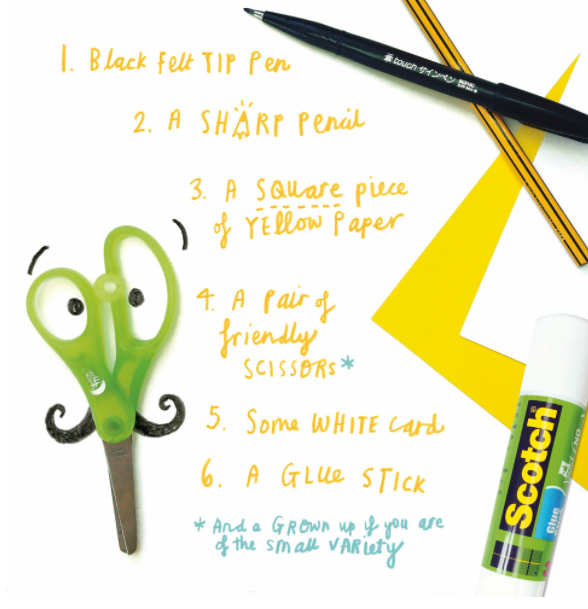 1. Black Felt TIP Pen
2. A SHARP Pencil
3. A SQUARE piece
of YELLOW Paper
4. A Pair of
friendly
SCISSORS*
5. Some WHITE card
6. A GLUE STICK
* And a GROWN up if you are
of the small VARIETY
touch サインペン
Scotch®
Glue